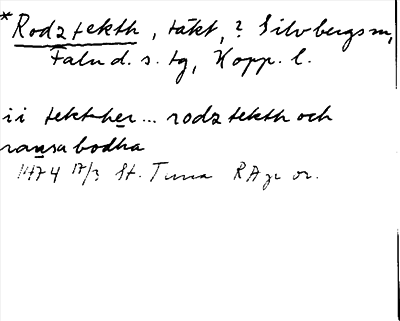 *Rodztekth, täkt, ? Silvbergs sn,
Falu d. s. tg, Kopp. l.
ii tekther... rodztekth och
ransabodha
1474 17/3 St. Tuna RAp or.